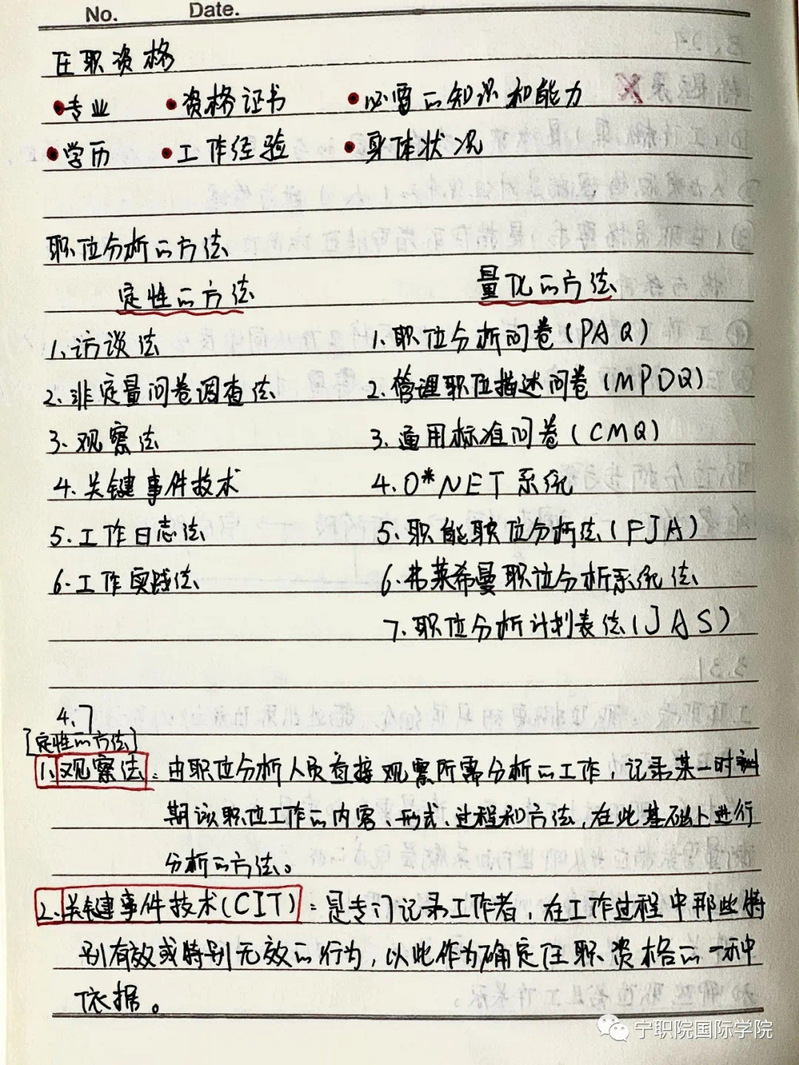 No. Date.
任职资格
•专业 •资格证书 •必需的知识和能力
•学历 •工作经验 •身体状况
职位分析的方法
定性的方法 量化的方法
1.访谈法 1.职位分析问卷(PAQ)
2.非定量问卷调查法 2.管理职位描述问卷(MPDQ)
3.观察法 3.通用标准问卷(CMQ)
4.关键事件技术 4.O*NET系统
5.工作日志法 5.职能职位分析法(FJA)
6.工作实践法 6.弗莱希曼职位分析系统法
7.职位分析计划表法(JAS)
4.7
[定性的方法]
1.观察法:由职位分析人员直接观察所需分析的工作,记录某一时
期该职位工作的内容、形式、过程和方法,在此基础上进行
分析的方法。
2.关键事件技术(CIT):是专门记录工作者,在工作过程中那些特
别有效或特别无效的行为,以此作为确定任职资格的一种
依据。
宁职院国际学院